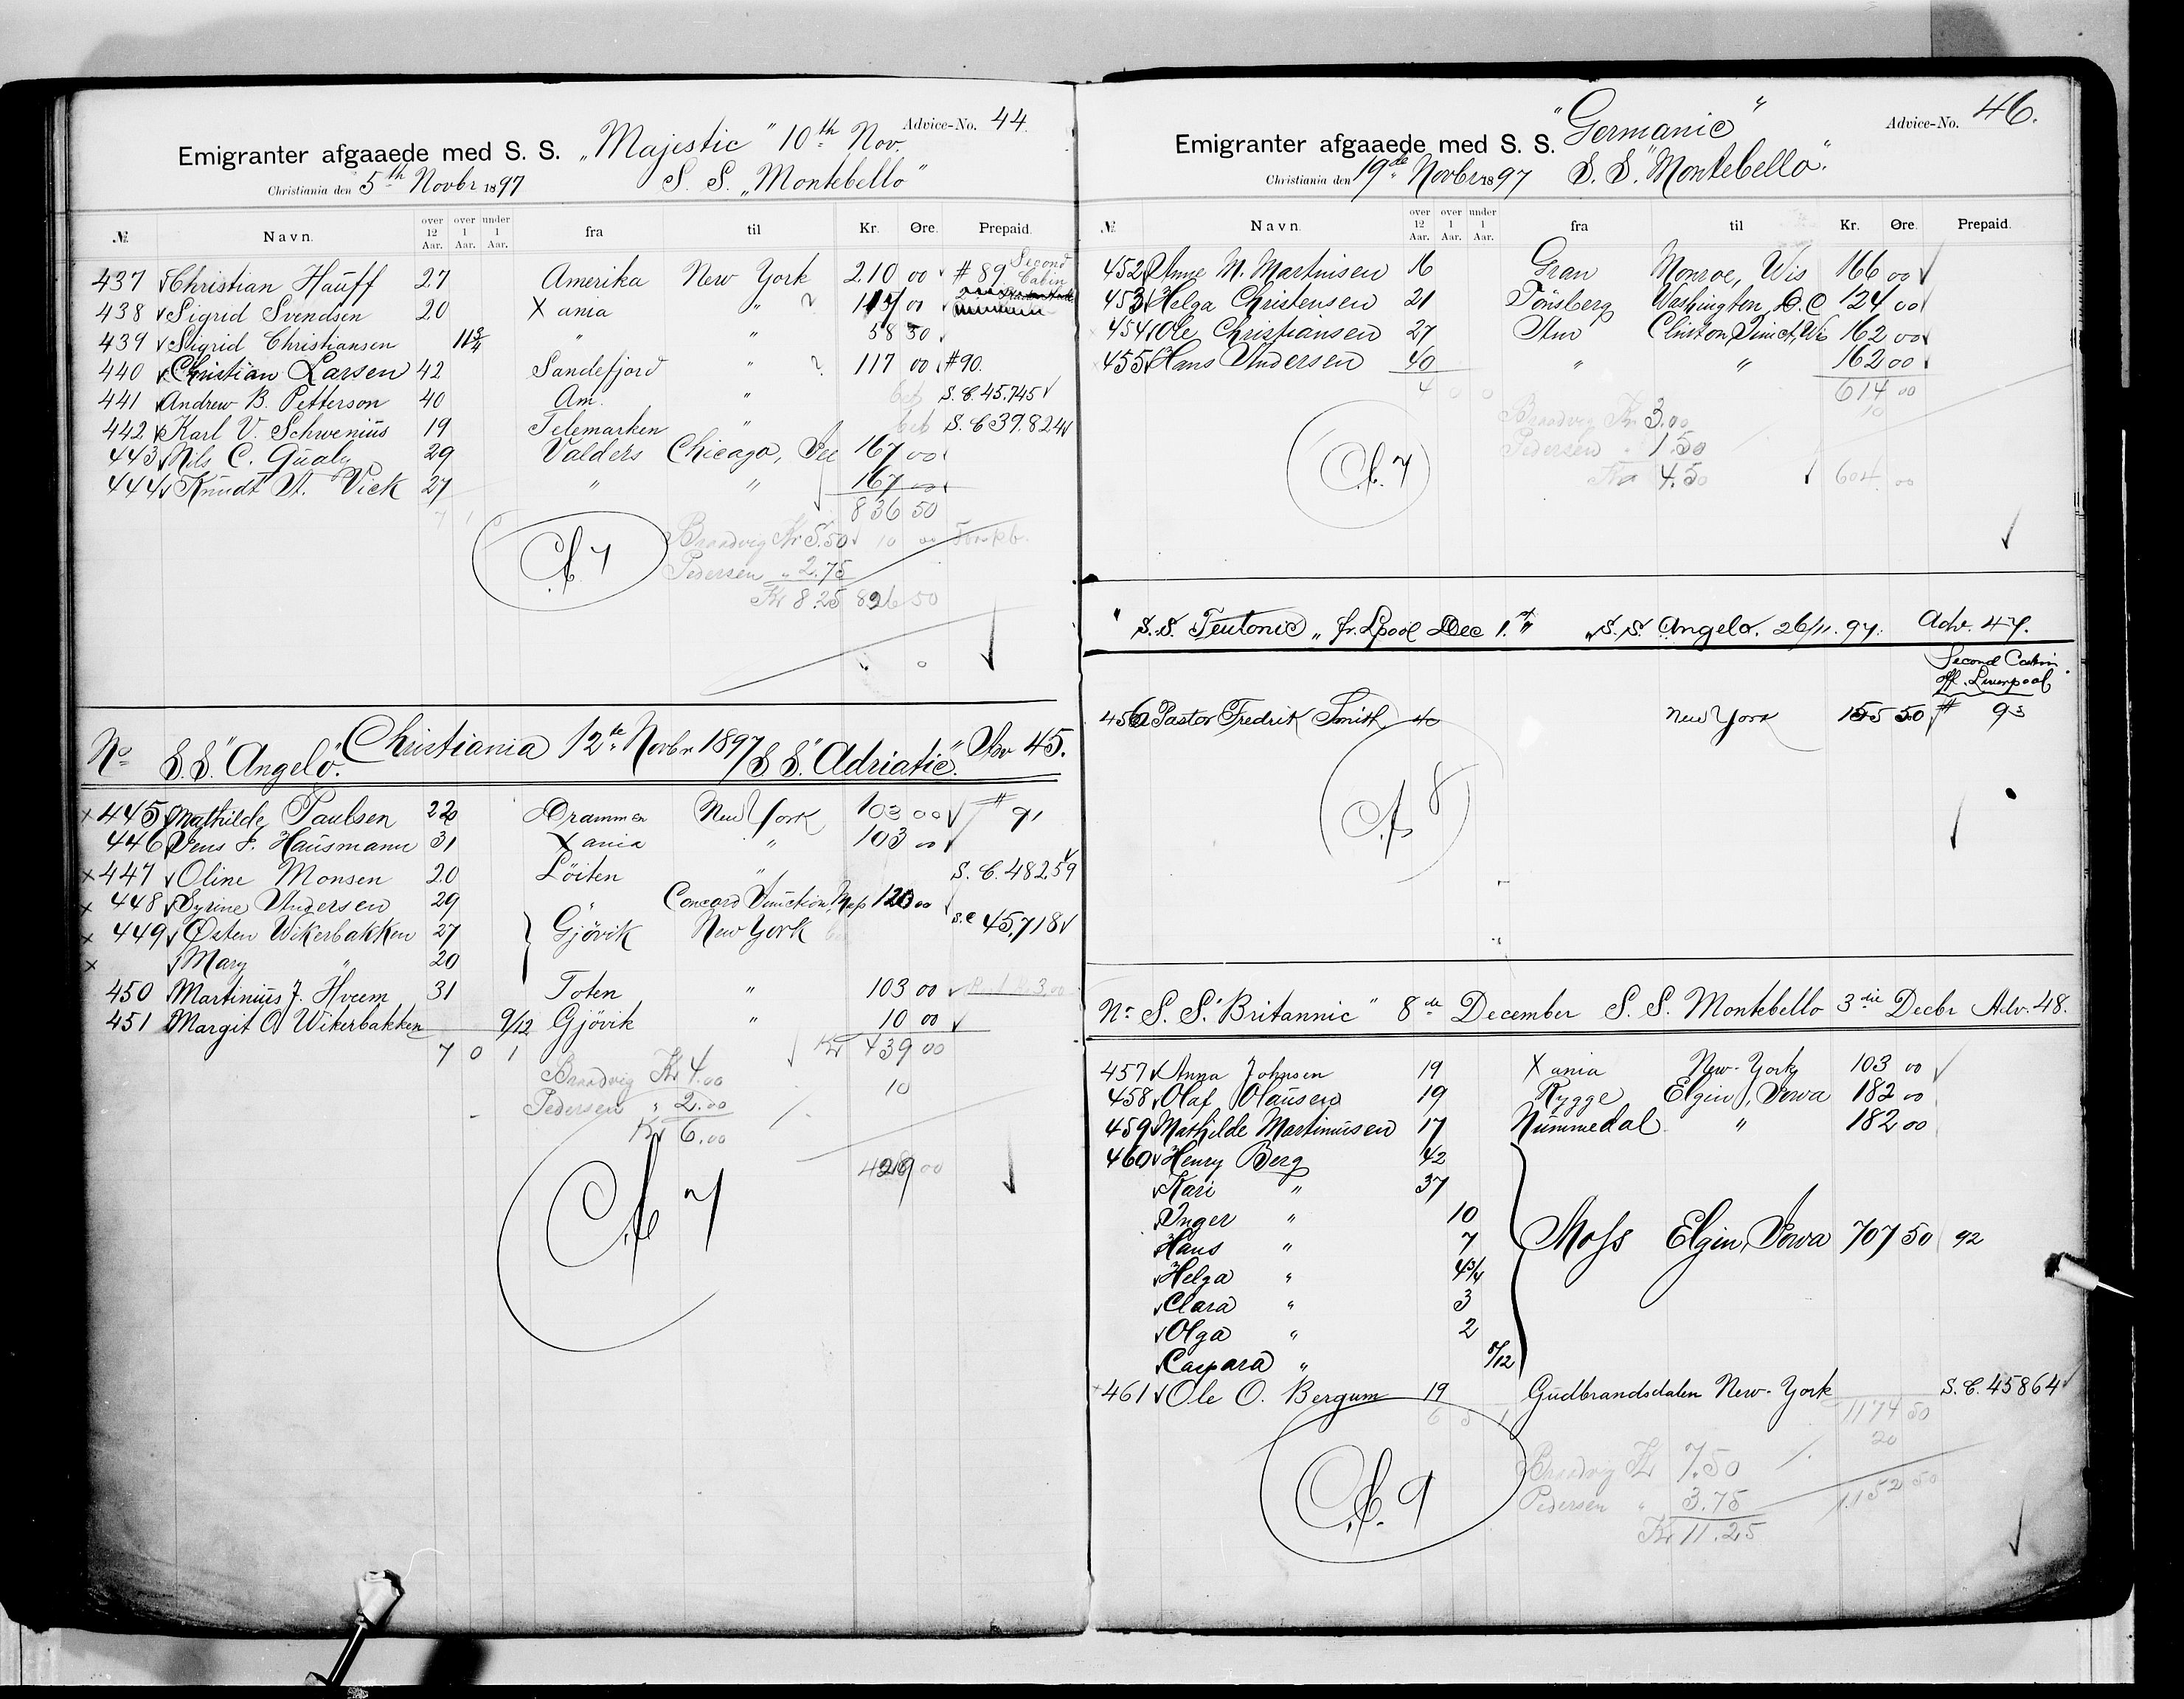 Advice-No. 44.
Emigranter afgaaede med S. S. „Majestic" 10th Nov.
Christiania den 5th Novbr 1897 S. S. „Montebello"
№ Navn. over 12 Aar. over 1 Aar. under 1 Aar. fra til Kr. Øre. Prepaid.
437 Christian Hauff 27 Amerika New York 210 00 #89 Second Cabin
438 Sigrid Svendsen 20 Xania " 117 00
439 Sigrid Christiansen 11¾ " " 58 50
440 Christian Larsen 42 Sandefjord " 117 00 #90.
441 Andrew B. Petterson 40 Am. " S. C. 45.745
442 Karl V. Schwenius 19 Telemarken " S. C 39.824
443 Nils C. Gualy 29 Valders Chicago, 167 00
444 Knudt A. Vick 27 " " 167 00
836 50
Braadvig Kr 5.50 10 00
Pedersen " 2.75
Kr 8.25 826 50
No S.S. "Angelo". Christiania 12te Novbr 1897 / S S. "Adriatic." Adv 45.
445 Mathilde Paulsen 22 Drammen New York 103 00 # 91
446 Jens F. Hausmann 31 Xania " 103 00
447 Oline Monsen 20 Löiten " S. C. 48259
448 Syrine Andersen 29 " Concord Junction, Mass 120 00
449 Østen Wikerbakken 27 Gjövik New York S.C 45,718
Mary " 20
450 Martinius J. Hveem 31 Toten " 103 00
451 Margit O Wikerbakken 9/12 Gjövik " 10 00
7 0 1 Kr 439 00
Braadvig Kr 4.00 10
Pedersen " 2.00
Kr 6.00
429 00
Advice-No. 46.
Emigranter afgaaede med S. S. "Germanic"
Christiania den 19de Novbr 1897 S. S. "Montebello".
№ Navn. over 12 Aar. over 1 Aar. under 1 Aar. fra til Kr. Øre. Prepaid.
452 Anne M. Martinisen 16 Gran Monroe, Wis 166 00
453 Helga Christensen 21 Tönsberg Washington, D. C 124 00
454 Ole Christiansen 27 Clinton Junct, Wi 162 00
455 Hans Andersen 40 " " 162 00
4 0 0 614 00
Braadvig Kr. 3.00 10
Pedersen " 1.50
Kr 4.50 604 00
" S. S. Teutonic „ fr. Lpool Dec 1st" „S. S. Angelo. 26/11. 97. Adv. 47.
Second Cabin
ff. Liverpool
456 Pastor Fredrik Smith 40 New York 155 50 # 93
No S. S. "Britannic" 8de December S. S. Montebello 3die Decbr Adv. 48.
457 Anna Johnsen 19 Xania New-York 103 00
458 Olaf Olausen 19 Rygge Elgin, Iowa 182 00
459 Mathilde Martinusen 17 Nummedal " 182 00
460 Henry Berg 42
Kari " 37
Inger " 10
Hans " 7 Moss Elgin, Iowa 707 50 92
Helga " 4¾
Clara " 3
Olga " 2
Caspara "
461 Ole O. Bergum 19 Gudbrandsdalen New-York S. C. 45864
6 5 1 1174 50
20
Braadvig Kr 7.50
Pedersen " 3.75 1152 50
Kr 11.25